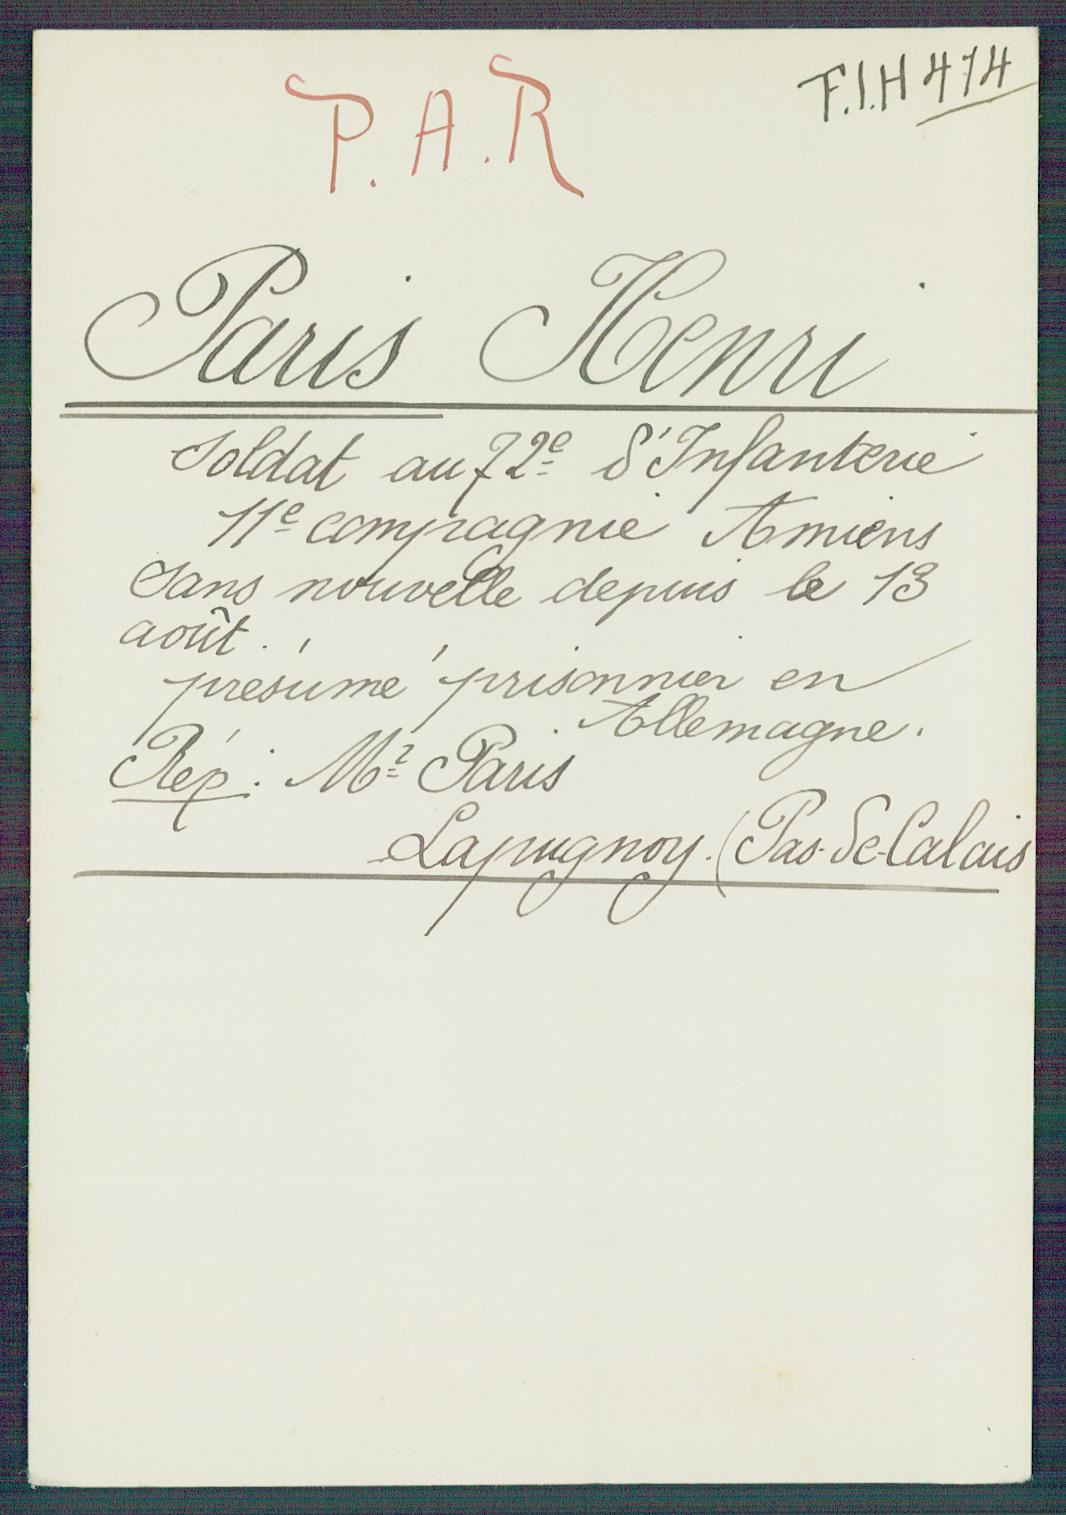 P.A.R
F.I.H 414
Paris Henri
Soldat au 72e d'Infanterie
11e compagnie Amiens
Sans nouvelle depuis le 13
août.
présumé prisonnier en
Allemagne.
Rép: Mr Paris
Lapugnoy. (Pas-de-Calais